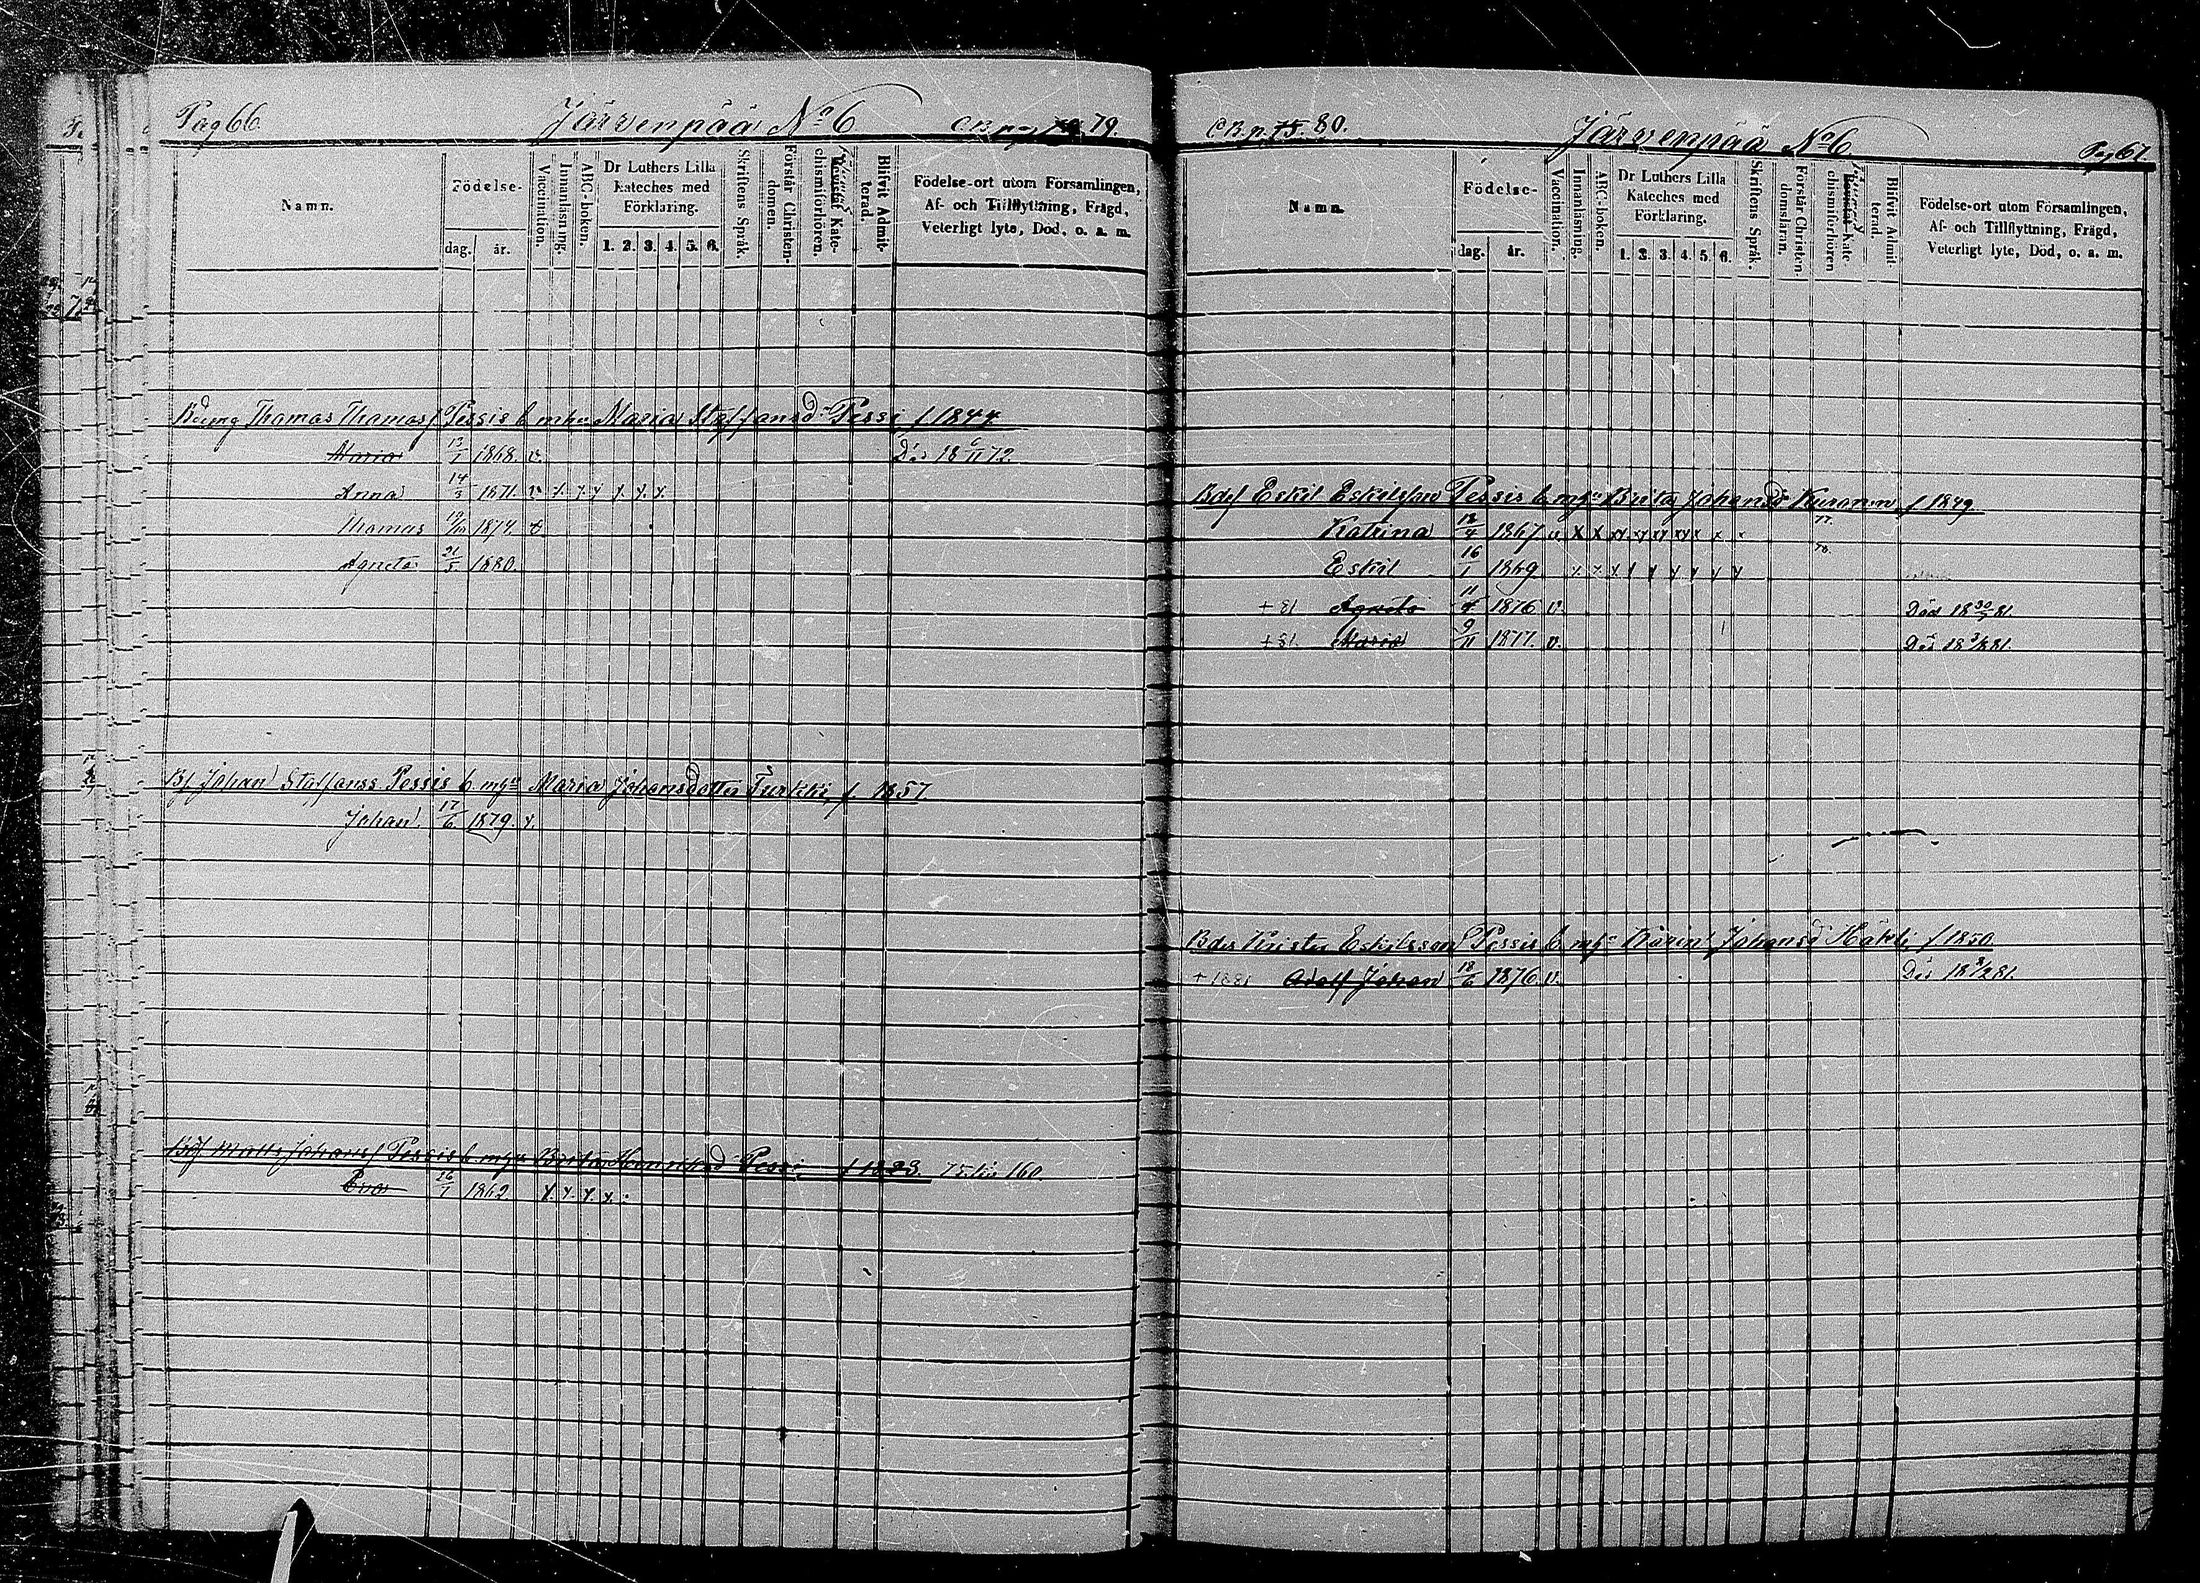 Pag 66. Järvenpää No 6 C.B. pag 79.
Namn. Födelse- dag. år. Vaccination. Innanläsning. ABC-boken. Dr Luthers Lilla Kateches med Förklaring. 1. 2. 3. 4. 5. 6. Skriftens Språk. Förstår Christendomen. Kate-chismiförhören. Blifvit Admitterad. Födelse-ort utom Församlingen, Af- och Tillflyttning, Frägd, Veterligt lyte, Död, o. a. m.
Thomas Thomass Pessis b m hu Maria Staffansd. Pessi f 1844
Maria 13/1 1868. v. Död 18 6/11 72.
Anna 14/3 1871. v x. x x x. x. x.
Thomas 19/10 1874. v
Agneta 21/5 1880.
Bf. Johan Staffanss Pessis b. m h u Maria Johansdotter Turkki, f. 1857.
Johan 17/6 1879. x.
Bdf Matts Johanss Pessis b. m h u Brita Pessi, f 1823. 75 160.
Eva 26/1 1862 x. x. x. x.
C.B. p. 75. 80. Järvenpää No 6 Pag 67
Namn. Födelse- dag. år. Vaccination. Innanläsning. ABC-boken. Dr Luthers Lilla Kateches med Förklaring. 1. 2. 3. 4. 5. 6. Skriftens Språk. Förstår Christendomsläran. Kate-chismiförhören Blifvit Admitterad. Födelse-ort utom Församlingen, Af- och Tillflyttning, Frägd, Veterligt lyte, Död, o. a. m.
Bdf Eskil Eskilsson Pessis b. m h u Brita Johansd f 1849
Katrina 12/4 1867 v x x xx xx xx xx x x x 77.
Eskil 16/1 1869. x. x. x x x x x x x 78.
+ 81 Agneta 11/4 1876 v. Död 18 30/5 81.
+ 81. Maria 9/11 1877. v. Död 18 3/2 81.
Bdf Krister Eskilsson Pessis b. m h u Karin Johansd Häkli f 1850
+ 1881 Adolf Johan 18/6 1876. v. Död 18 3/2 81.